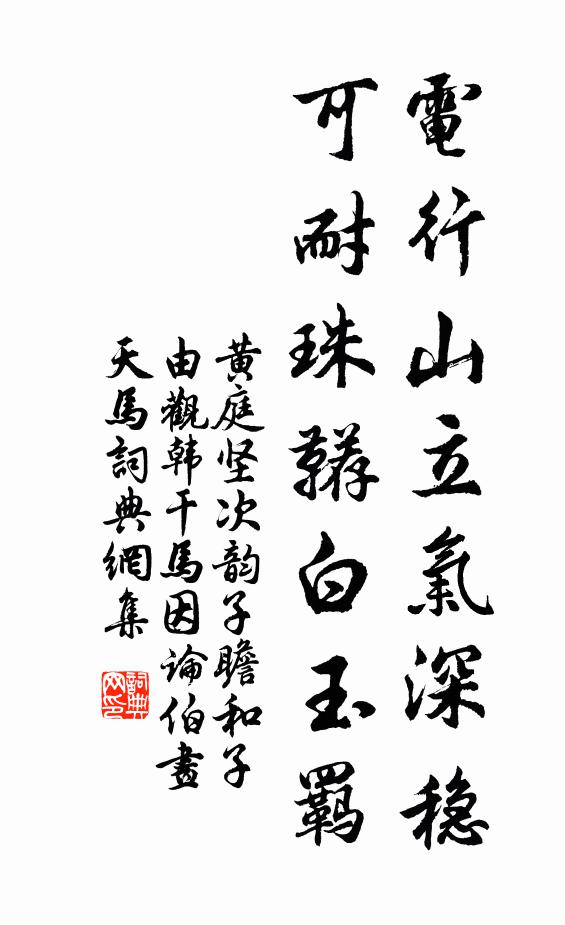 電行山立氣深稳
可耐珠鞯白玉羈
黄庭坚次韵子瞻和子
由觀韩干馬因論伯畫
天馬詞典網集
詞典
网印